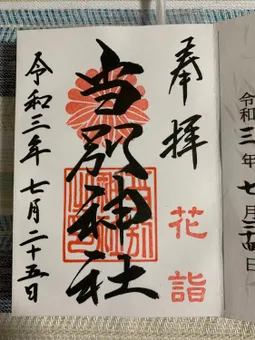 奉拝
花詣
当別神社
令和三年七月二十五日
令和三年七月日